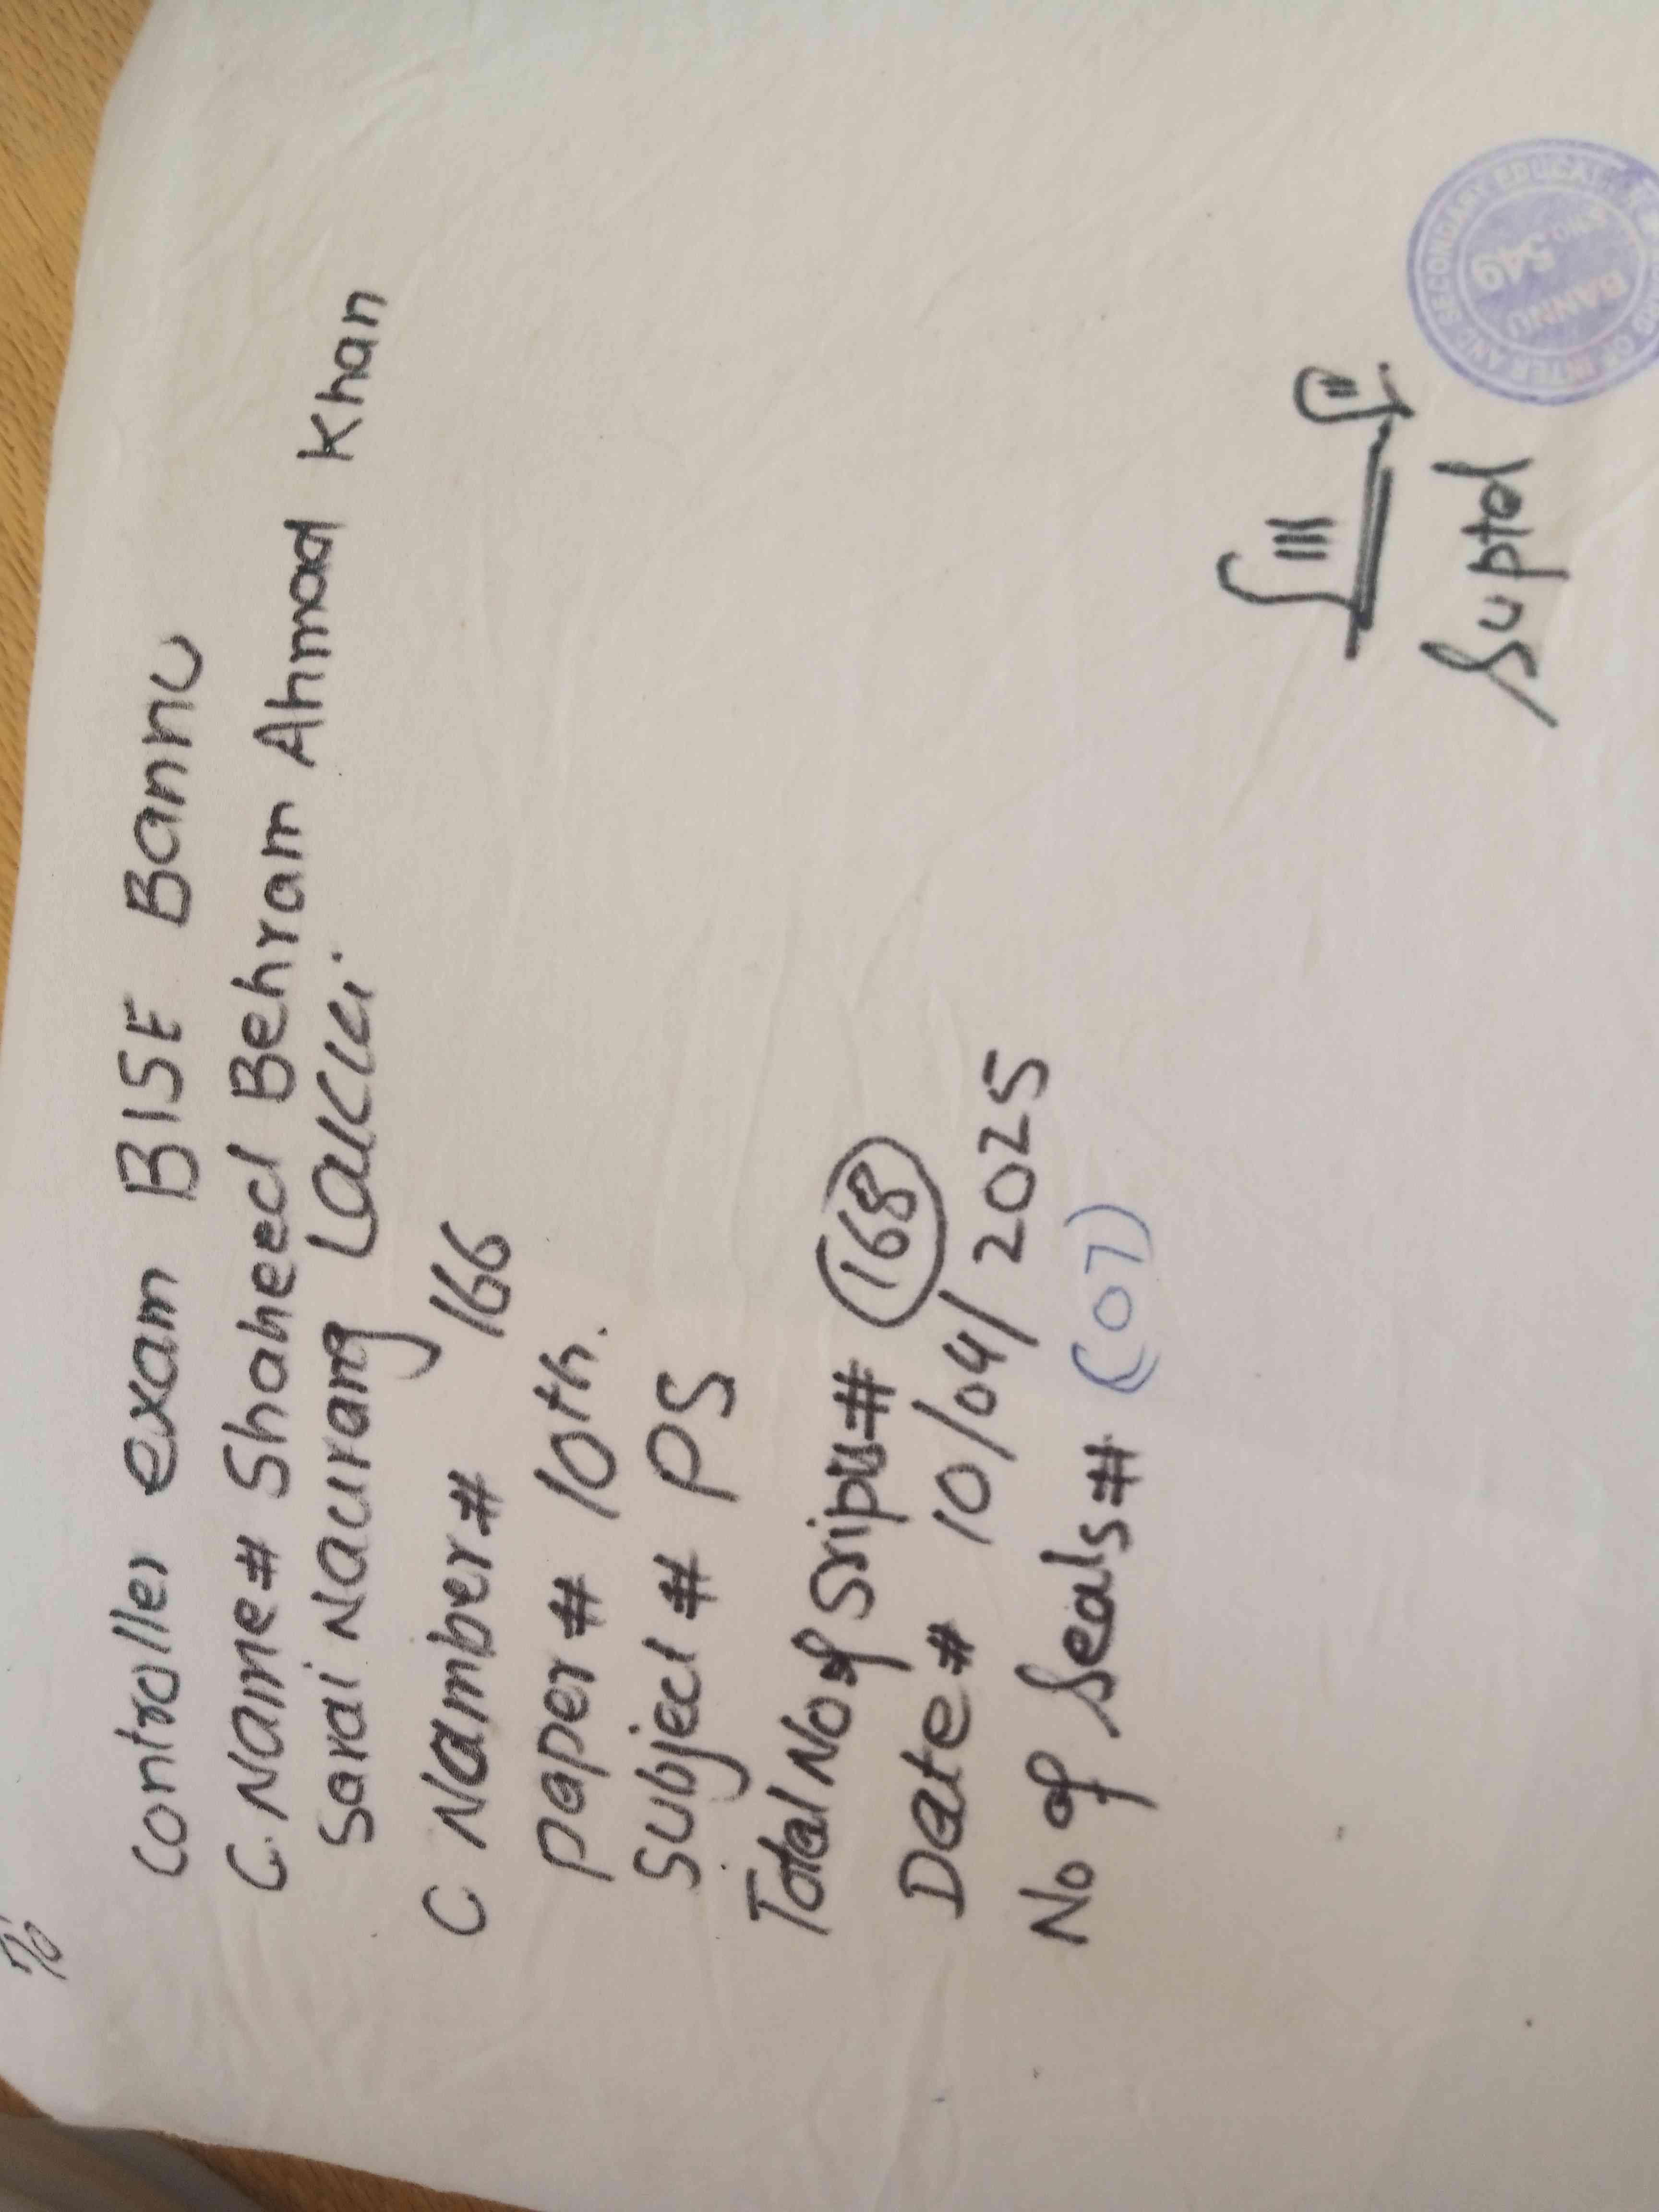 To
Controller exam BISE Bannu
C.Name# Shaheed Behram Ahmad Khan
Sarai Naurang Lakki.
C Number# 166
paper# 10th.
Subject# PS
Total No of Sripts# 168
Date# 10/04/2025
No of Seals# (07)
Suptd
BOARD OF INTER AND SECONDARY EDUCATION
549
BANNU